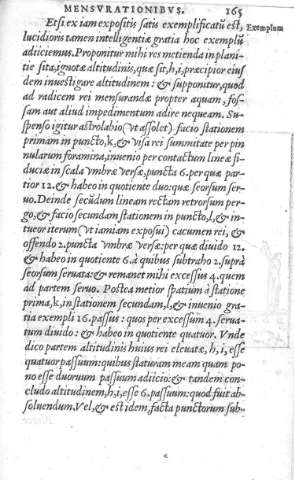 MENSVRATIONIBVS. 165
Etsi ex iam expositis satis exemplificatū est,
Exemplum
lucidioris tamen intelligentiæ gratia hoc exemplū
adijciemus. Proponitur mihi res metienda in plani-
tie sita, ignotæ altitudinis, quæ sit, h, i, præcipior eius
dem inuestigare altitudinem: & supponitur, quod
ad radicem rei mensurandæ propter aquam, fos-
sam aut aliud impedimentum adire nequeam. Su-
spenso igitur astrolabio (vt assolet) facio stationem
primam in puncto, k, & visa rei summitate per pin
nularum foramina, inuenio per contactum lineæ fi-
duciæ in scala vmbræ versæ, punctis 6. per quæ par-
tior 12. & habeo in quotiente duo: quæ seorsum ser-
uo. Deinde secūdum lineam rectam retrorsum per-
go, & facio secundam stationem in puncto, l, & in-
tueor iterum (vt iam iam exposui) cacumen rei, &
offendo 2. puncta vmbræ versæ: per quæ diuido 12.
& habeo in quotiente 6. à quibus subtraho 2. suprà
seorsum seruata: & remanet mihi excessus 4. quem
ad partem seruo. Postea metior spatium à statione
prima, k, in stationem secundam, l, & inuenio gra-
tia exempli 16. passus: quos per excessum 4. serua-
tum diuido: & habeo in quotiente quatuor. Vnde
dico partem altitudinis huius rei eleuatæ, h, i, esse
quatuor passuum: quibus staturam meam quam po-
no esse duorum passuum adijcio: & tandem con-
cludo altitudinem, h, i, esse 6. passuum: quod fuit ab-
soluendum. Vel, & est idem, facta punctorum sub-